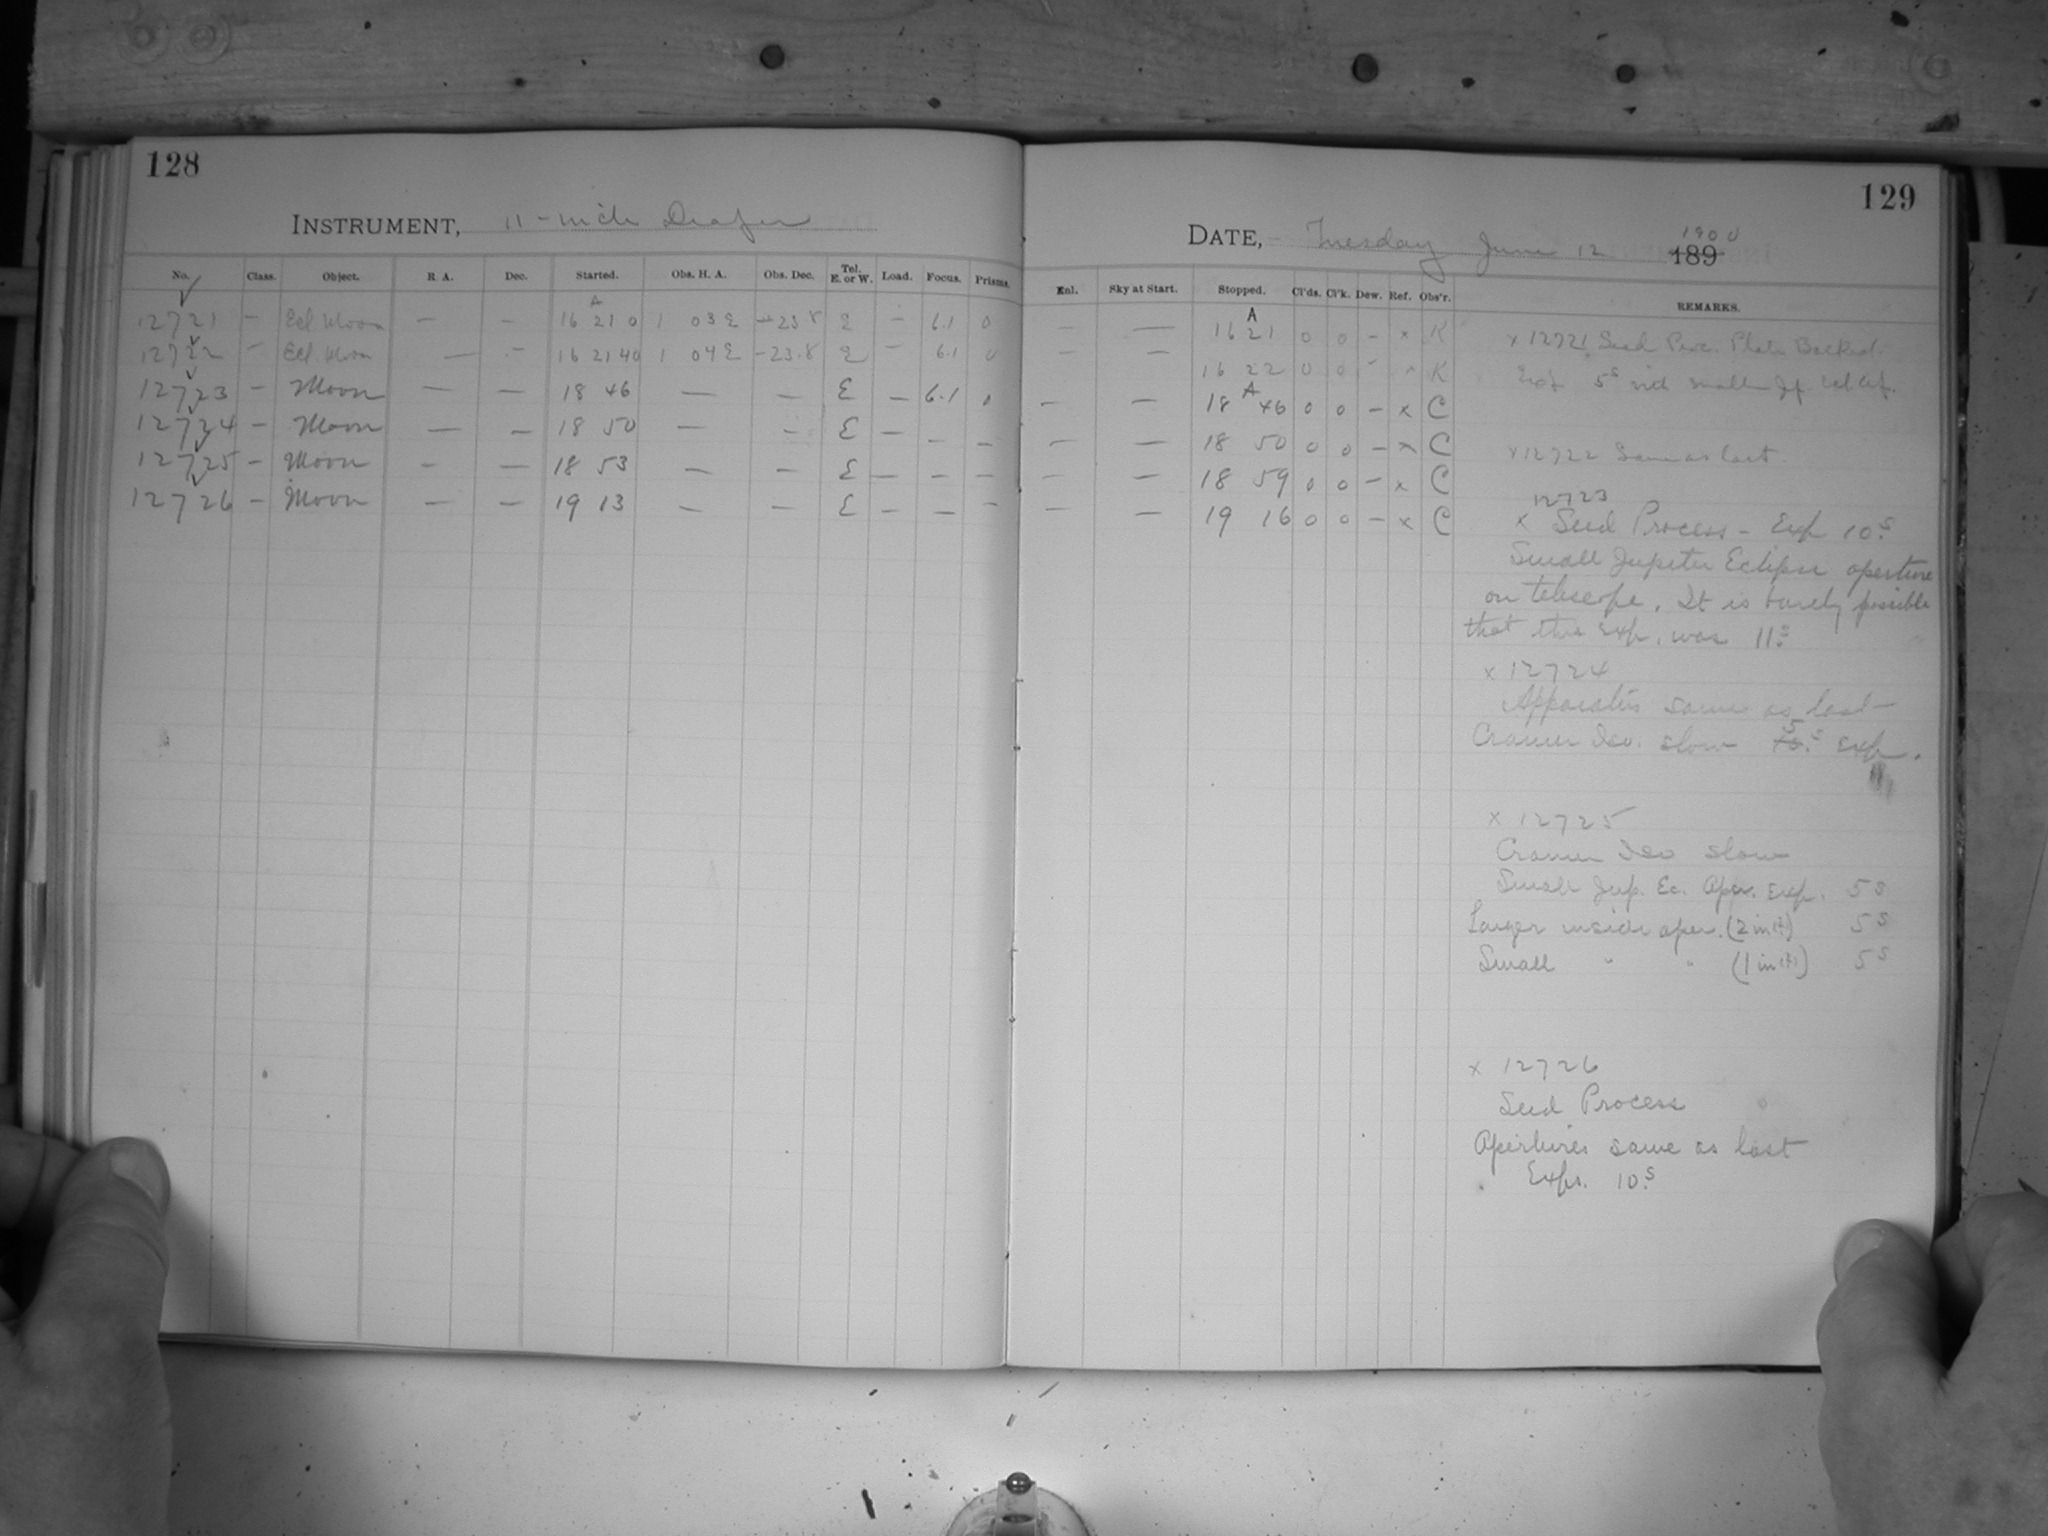 128
INSTRUMENT, 11-inch Draper
No. Class. Object. R. A. Dec. Started. Obs. H. A. Obs. Dec. Tel. E. or W. Load. Focus. Prisms.
A
12721 – Ecl Moon — – 16 21 0 1 03 E –23.8 E – 6.1 0
12722 – Ecl. Moon — – 16 21 40 1 04 E –23.8 E – 6.1 0
12723 – Moon — — 18 46 — — E — 6.1 0
12724 – Moon — — 18 50 — – E — – –
12725 – Moon – — 18 53 — – E — — –
12726 – Moon – — 19 13 — — E — — –
129
DATE, Tuesday June 12 1900
189
Enl. Sky at Start. Stopped. Cl'ds. Cl'k. Dew. Ref. Obs'r. REMARKS.
A
— — 16 21 0 0 – x K
– – 16 22 0 0 – x K
A
– — 18 46 0 0 – x C
– — 18 50 0 0 – x C
– — 18 59 0 0 – x C
– — 19 16 0 0 – x C
x 12721 Seed Proc. Plate Backed.
Exp 5s with small Jp. Ecl. Ap.
x 12722 Same as last.
12723
x Seed Process – Exp 10s.
Small Jupiter Eclipse aperture
on telescope. It is barely possible
that this exp. was 11s.
x 12724
Apparatus same as last –
Cramer Iso. slow 5s. exp.
x 12725
Cramer Iso slow
Small Jup. Ec. Aper. Exp. 5s
Larger inside aper. (2 in ±) 5s
Small " " (1 in ±) 5s
x 12726
Seed Process
Apertures same as last
Exps. 10s.